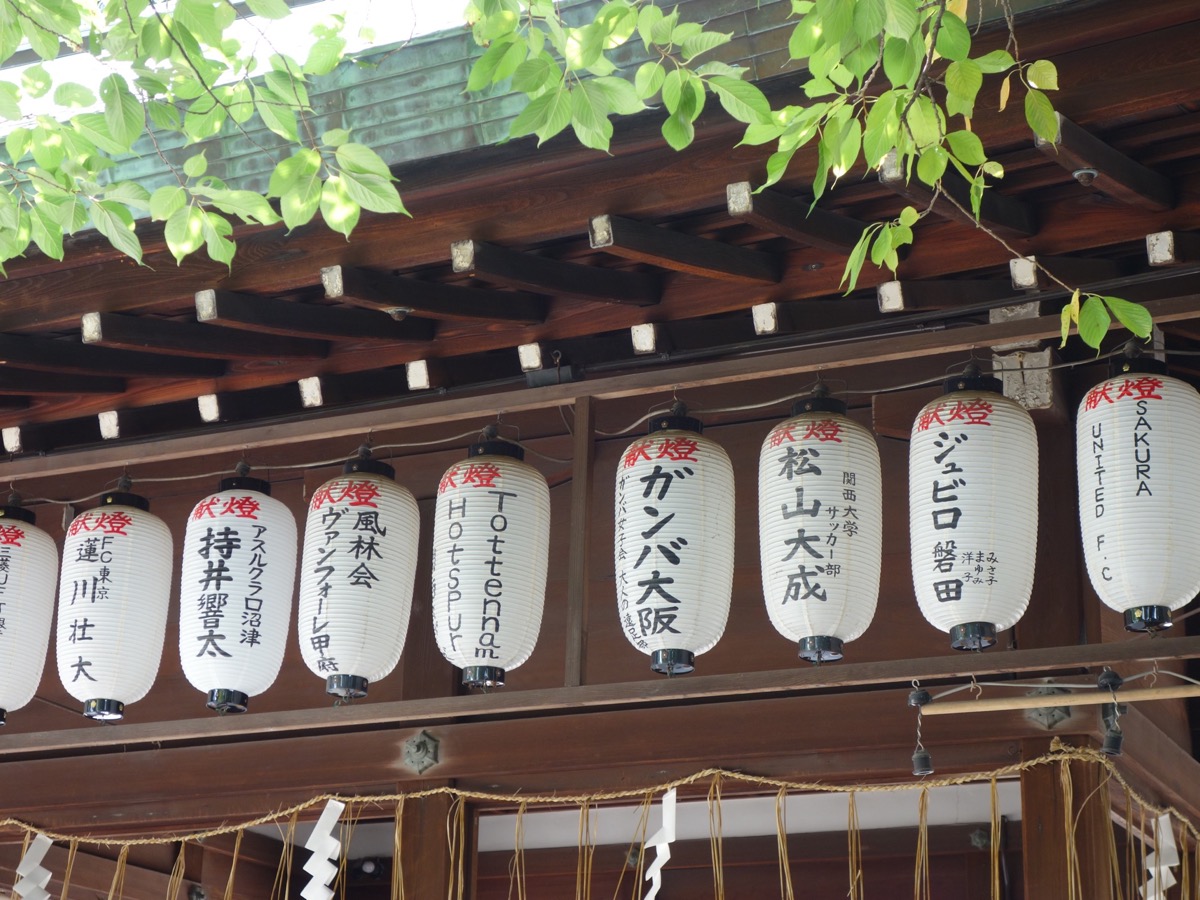 献燈
FC東京
蓮川壮大
献燈
アスルクラロ沼津
持井響太
献燈
風林会
ヴァンフォーレ甲府
献燈
Tottenham
Hotspur
献燈
ガンバ大阪
ガンバ女子会
献燈
関西大学
サッカー部
松山大成
献燈
ジュビロ磐田
みさ子
まゆみ
洋子
献燈
SAKURA
UNITED F.C